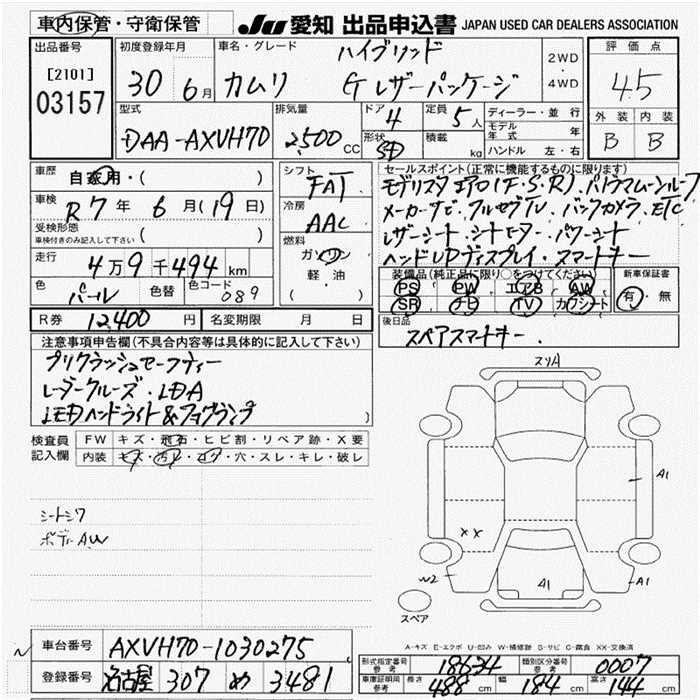 車内保管・守衛保管
JU 愛知 出品申込書 JAPAN USED CAR DEALERS ASSOCIATION
出品番号 初度登録年月 車名・グレード ハイブリッド 2WD・4WD 評価点
[2101] 03157 30 6月 カムリ Gレザーパッケージ 4.5
型式 排気量 ドア 4 定員 5人 ディーラー・並行 外装 内装
DAA-AXVH70 2,500CC 形状 SD 積載 kg モデル年式 年 B B
ハンドル 左・右
車歴 自家用・( ) シフト FAT セールスポイント(正常に機能するものに限ります)
車検 R7年 6月(19日) 冷房 AAC モデリスタエアロ(F.S.R).パノラマムーンルーフ
受検形態 車検付きのみ記入して下さい ( ) メーカーナビ.フルセグTV.バックカメラ.ETC
燃料 ガソリン 軽・油 ・( ) レザーシート.シートヒーター.パワーシート
走行 4万9千494km ヘッドUPディスプレイ.スマートキー
色 パール 色替 色コード 089 装備品(純正品に限り○をつけてください) 新車保証書
PS PW エアB AW 有・無
SR ナビ TV カワシート
R券 12,400円 名変期限 月 日 後日品 スペアスマートキー.
注意事項申告欄(不具合内容等は具体的に記入して下さい)
プリクラッシュセーフティー
レーダークルーズ.LDA
LEDヘッドライト&フォグランプ
スリA
検査員記入欄 FW キズ・飛石・ヒビ割・リペア跡・X要
内装 キズ・汚レ・コゲ・穴・スレ・キレ・破レ
A1
シートシワ
ボディーAW
XX
W2 A1 A1
スペア
A-キズ E-エクボ U-凹み W-補修跡 S-サビ C-腐食 XX-交換済
車台番号 AXVH70-1030275
登録番号 名古屋 307 め 3481
形式指定番号 参考 18634 類別区分番号 参考 0007
車庫証明用 参考 長さ 488cm 幅 184cm 高さ 144cm